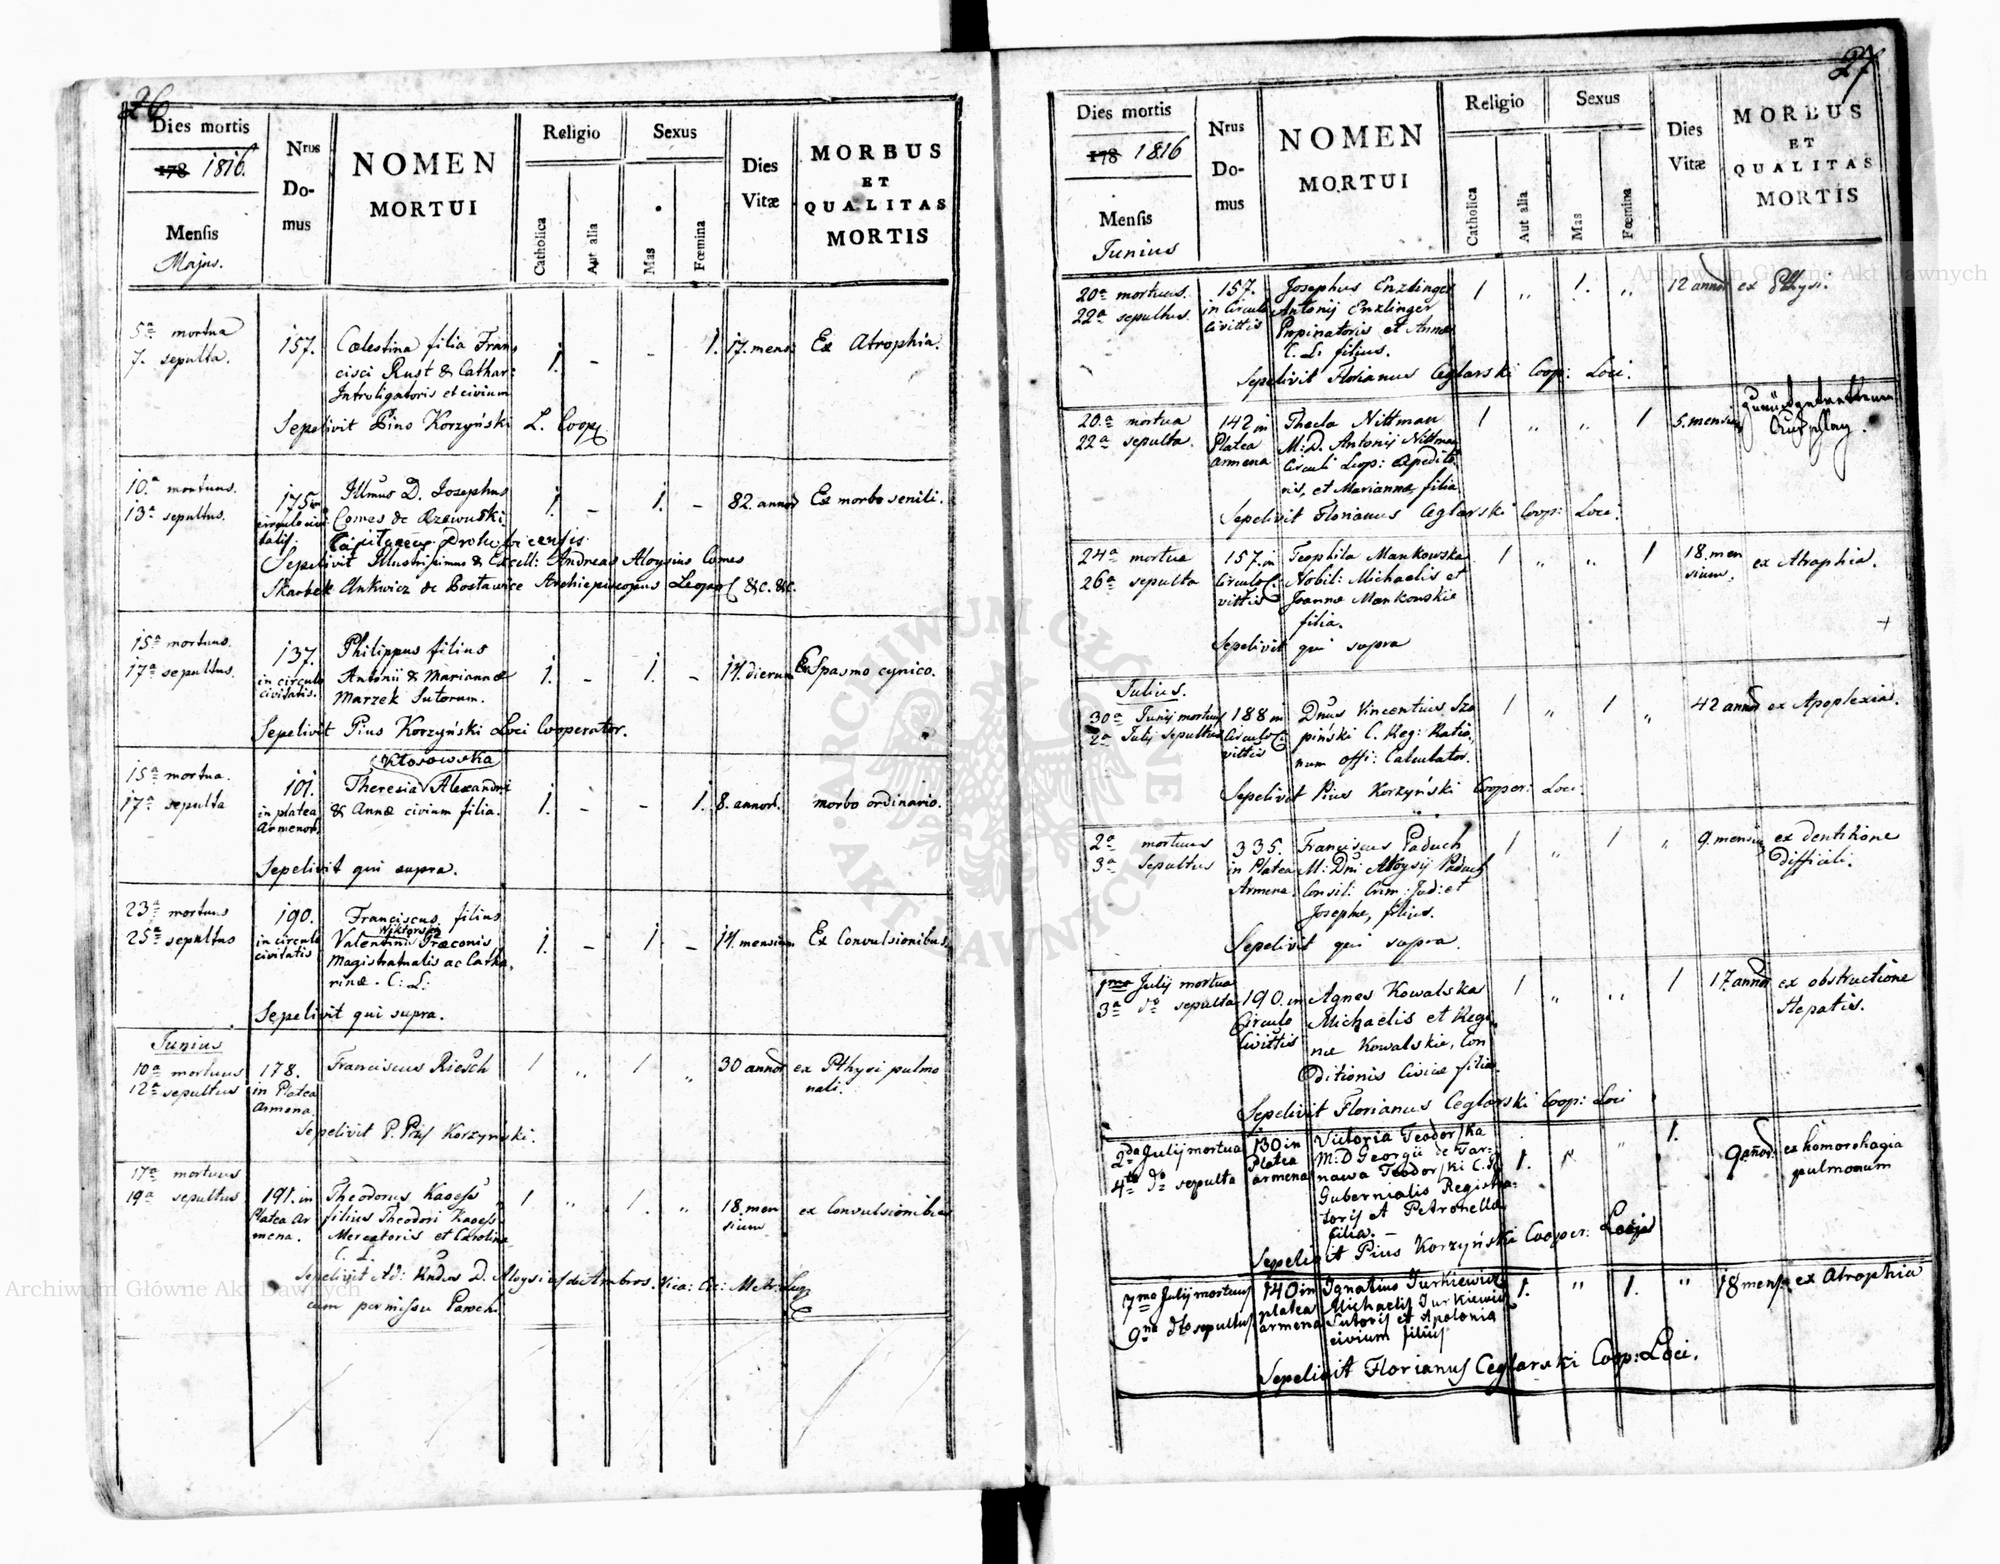 26
Dies mortis
178 1816.
Mensis
Majus.
Nrus
Do-
mus
NOMEN
MORTUI
Religio
Catholica
Aut alia
Sexus
Mas
Fœmina
Dies
Vitæ
MORBUS
ET
QUALITAS
MORTIS
5a mortua 157. Cœlestina filia Fran 1. - - 1. 17. mens: Ex Atrophia.
7. sepulta. cisci Rust & Cathar:
Introligatoris et civium
Sepelivit Pius Korzyński L. Coop.
10.a mortuus. 175 in Illmus D. Josephus 1. - 1. - 82. annor Ex morbo senili.
13a sepultus. circulo civi Comes de Rzewuski
tatis.
Sepelivit Illustrissimus & Excell: Andreas Aloysius Comes
Skarbek Ankwicz de Postawice Archiepiscopus Leopol &c. &c.
15a mortuus. 137. Philippus filius 1. - 1. - 14. dierum Ex Spasmo cynico.
17a sepultus. in circulo Antonii & Mariannæ
civitatis. Marzek Sutorum.
Sepelivit Pius Korzyński Loci Cooperator.
Kłosowska
15a mortua. 101. Theresia Alexandri 1. - - 1. 8. annor. morbo ordinario.
17a sepulta in platea & Annæ civium filia.
Armenor.
Sepelivit qui supra.
23a mortuus 190. Franciscus filius 1. - 1. - 14. mensium Ex Convulsionibus.
Wiktorski
25a sepultus in circulo Valentini Præconis
civitatis Magistratualis ac Catha
rinæ. C: L:
Sepelivit qui supra.
Junius
10a mortuus 178. Franciscus Riesch 1 " 1 " 30 annor ex Pthysi pulmo
12a sepultus in Platea nali.
Armena.
Sepelivit P. Pius Korzyński.
17a mortuus
19a sepultus 191. in Theodorus Kagess 1 " 1. " 18. men ex Convulsionibus
Platea Ar filius Theodori Kagess sium
mena. Mercatoris et Carolina
C. L.
Sepelivit Ad: Rndus D. Aloysius de Ambros. Vica: Metr:
cum permissu Paroch.
27
Dies mortis
178 1816
Mensis
Junius
Nrus
Do-
mus
NOMEN
MORTUI
Religio
Catholica
Aut alia
Sexus
Mas
Fœmina
Dies
Vitæ
MORBUS
ET
QUALITAS
MORTIS
20a mortuus. 157. Josephus Enzlinger 1 " 1. " 12 annor ex Pthysi.
22a sepultus. in Circulo Antonij Enzlinger
Civittis Propinatoris et Annæ
C. L. filius.
Sepelivit Florianus Ceglarski Coop: Loci.
20.a mortua 142 in Thecla Nittman 1 " " 1 5. mensium Zurückgetrettener
22a sepulta. Platea M: D. Antonij Nittman Ausschlag.
armena Circuli Leop: Expedito
ris, et Mariannæ filia
Sepelivit Florianus Ceglarski Coop: Loci.
24a mortua 157. in Teophila Mankowska 1 " " 1 18. men ex Atrophia.
26a sepulta Circulo Ci Nobil: Michaelis et sium.
vittis Joannæ Mankowskie
filia.
Sepelivit qui supra
Julius.
30a Junij mortuus 188 in Dnus Vincentius Szo 1 " 1 " 42 annor ex Apoplexia.
2a Julij sepultus Circulo Ci piński C. Reg: Ratio
vittis num offi: Calculator.
Sepelivit Pius Korzyński Cooper: Loci.
2a mortuus 335. Franciscus Paduch 1 " 1 " 9. mensium ex dentitione
3a sepultus in Platea M: Dni Aloysij Paduch difficili.
Armena. Consil: Crim: Jud: et
Josephæ, filius.
Sepelivit qui supra.
1ma Julij mortua 190. in Agnes Kowalska 1 " " 1 17. annor ex obstructione
3a do sepulta Circulo Michaelis et Regi Hepatis.
Civittis næ Kowalskie, Con
ditionis Civicæ filia.
Sepelivit Florianus Ceglarski Coop: Loci
2da Julij mortua 130 in Victoria Teodorska 1. " " 1. 9 annor. ex hömorohagia
4ta do sepulta Platea M: D Georgii de Tar- pulmonum
armena nawa Teodorski C. R.
Gubernialis Registra-
toris et Petronella
filia. -
Sepelivit Pius Korzyński Cooper: Loci
7ma Julij mortuus 140 in Ignatius Jurkiewicz 1. " 1. " 18 mens. ex Atrophia
9na dto sepultus platea Michaelis Jurkiewicz
armena Sutoris et Apolonia
civium filius
Sepelivit Florianus Ceglarski Coop: Loci.
Archiwum Główne Akt Dawnych
Archiwum Główne Akt Dawnych
ARCHIWUM GŁÓWNE AKT DAWNYCH